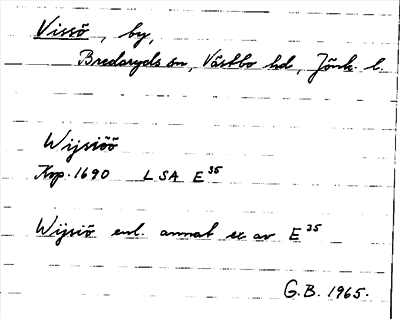 Vissö, by,
Bredaryds sn, Västbo hd, Jönk. l.
Wijsiöö
Krp. 1690 LSA E 35
Wijsiö enl. annat ex av E 35
G.B. 1965.